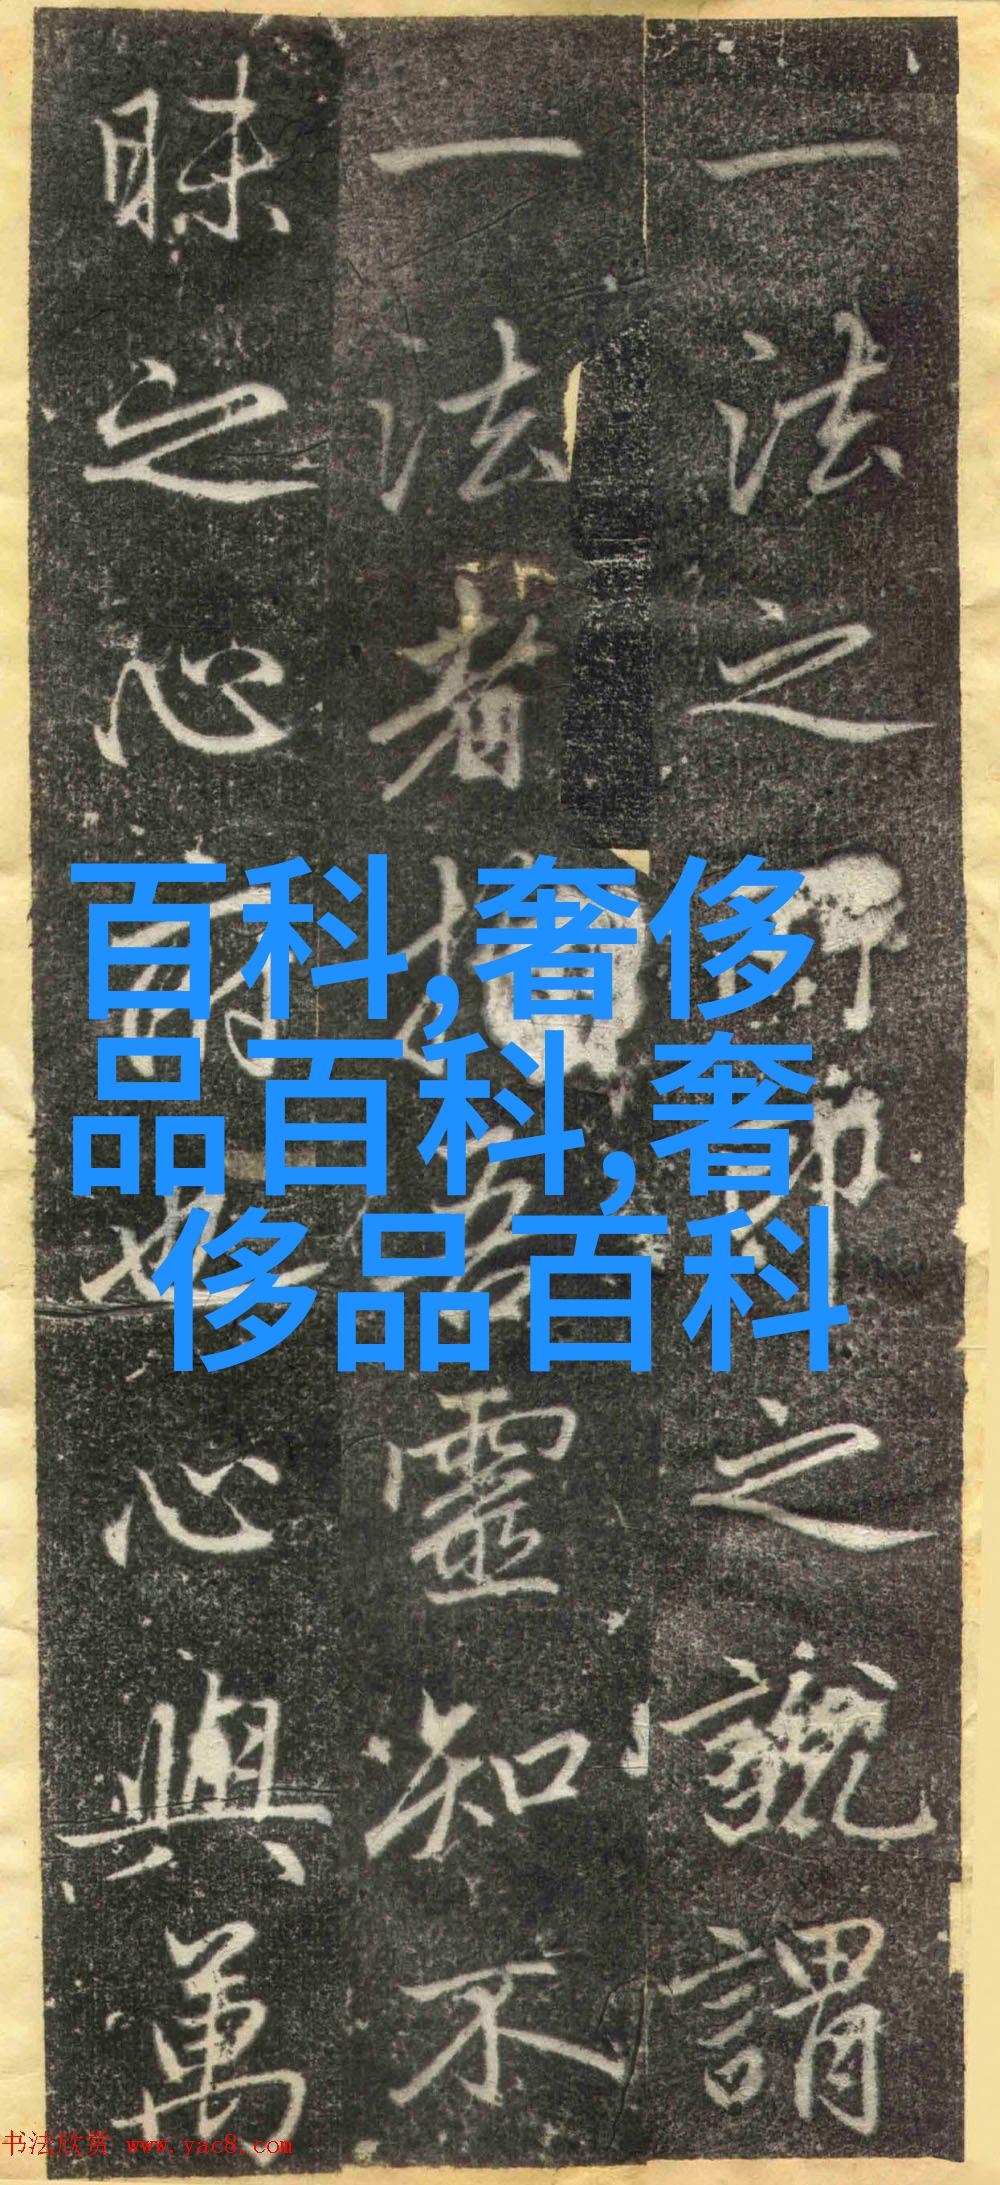 一法之
之說謂
一法者
吾靈知不
昧之心
心與萬
百科,奢侈
品百科,奢
侈品百科
书法欣赏 www.yac8.com